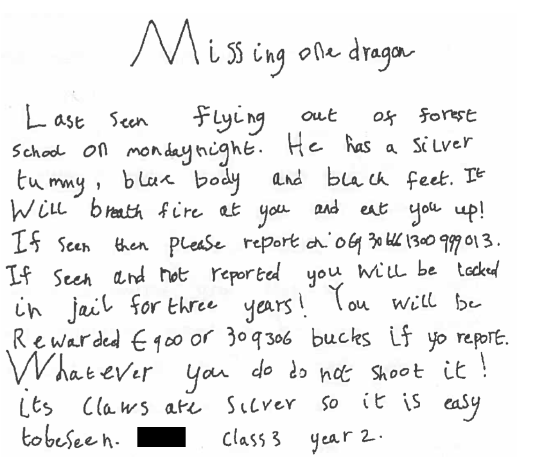 Missing one dragon
Last seen flying out of forest
school on mondaynight. He has a Silver
tummy, blue body and black feet. It
Will breath fire at you and eat you up!
If seen then please report on
If Seen and not reported you will be locked
in jail for three years! You will be
Rewarded €900 or 309306 bucks if yo report.
Whatever you do do not shoot it!
its claws are Silver so it is easy
tobeseen. Class 3 year 2.